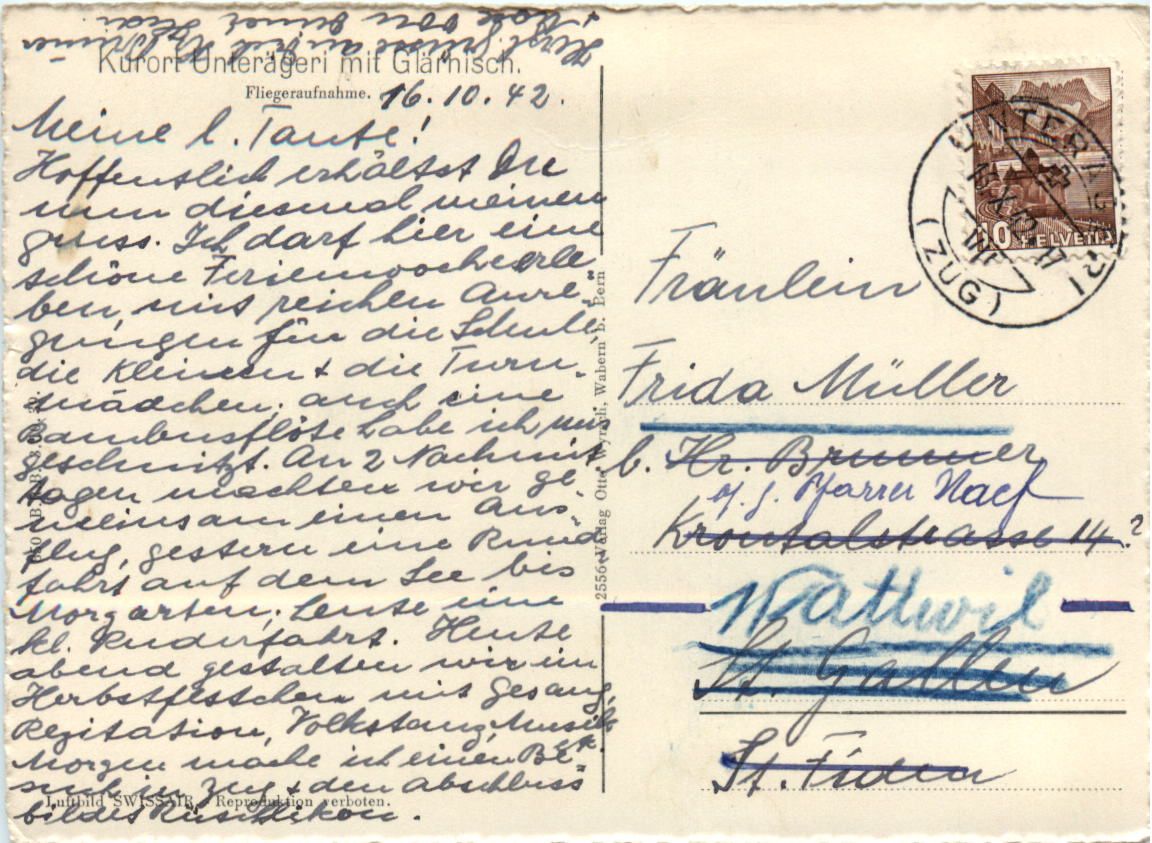 Herzl. Grüsse an Frl.
+ von Deiner Hedi
Kurort Unterägeri mit Glärnisch.
Fliegeraufnahme. 16.10.42.
Meine l. Tante!
Hoffentlich erhältst Du
nun diesmal meinen
gruss. Ich darf hier eine
schöne Ferienwoche erle-
ben, mit reichen Anre-
gungen für die Schule
die Kleinen + die Turn-
mädchen, auch eine
Bambusflöte habe ich uns
geschnitzt. An 2 Nachmit
tagen machten wir ge-
meinsam einen Aus-
flug, gestern eine Rund
fahrt auf dem See bis
Morgarten, heute eine
kl. Ruderfahrt. Heute
abend gestalten wir ein
Herbstfestchen mit Gesang,
Rezitation, Volkstanz, Musik
etc.
Morgen mache ich einen Be-
such in Zug + den Abschluss
bildet Rüschlikon.
Luftbild SWISSAIR, Reproduktion verboten.
2556 Verlag Otto Wyrsch, Wabern b. Bern
UNTERÄGERI
(ZUG)
10 HELVETIA
Fräulein
Frida Müller
b. Hr. Brunner
Pfarrer Naef
Krontalstrasse 14.?
Wattwil
St. Gallen
St. Fiden